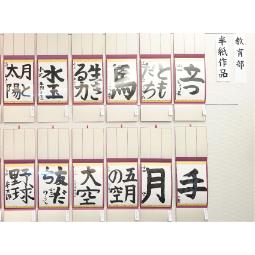 教育部
半紙作品
立つ
とも
だち
馬
生き
る力
水玉
月と
太陽
手
月
五月
の空
大空
友だ
ち
野球